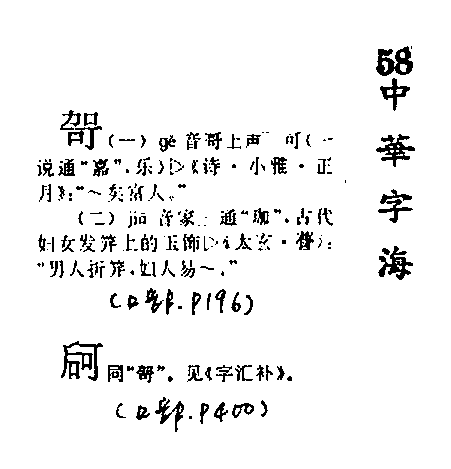 哿 (一) gě 音哥上声 可(一
说通“嘉”,乐)▷《诗·小雅·正
月》:“~矣富人。”
(二) jiā 音家 通“珈”,古代
妇女发笄上的玉饰▷《太玄·瞢》:
“男人折笄,妇人易~。”
(口部.P196)
同“哿”。见《字汇补》。
(口部.P400)
58
中華字海